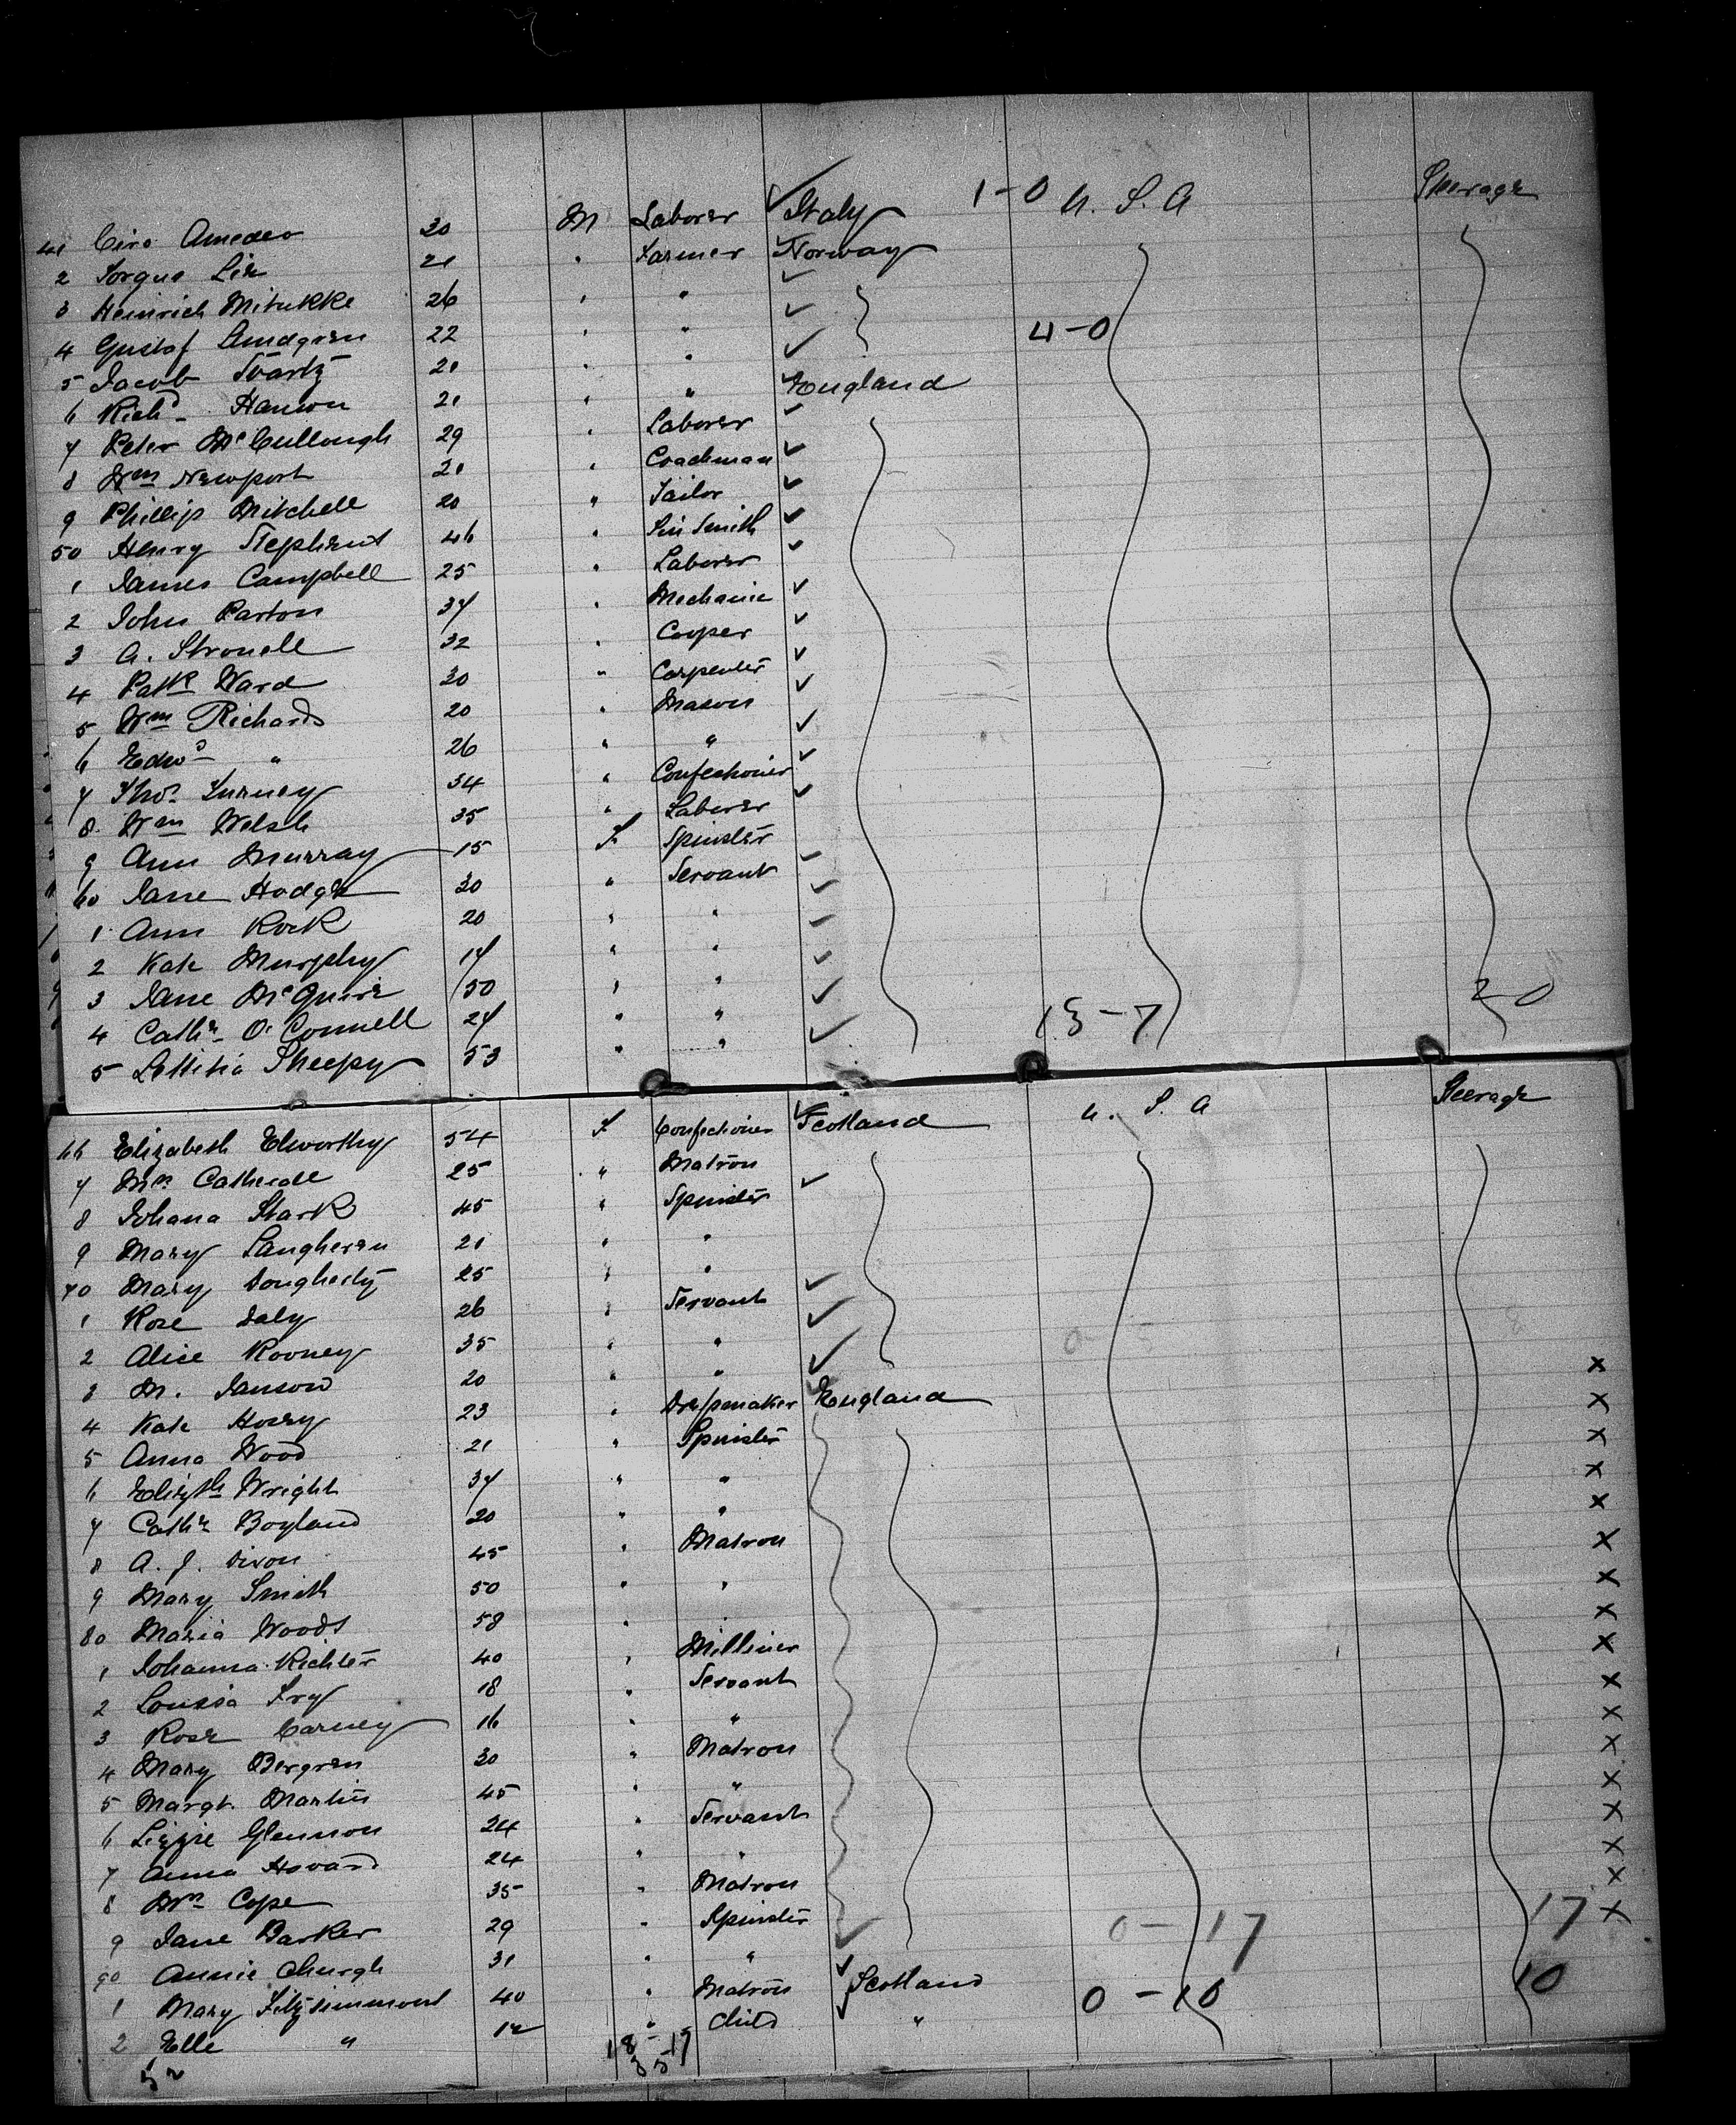 41 Ciro Amedeo 30 M Laborer ✓ Italy 1-0 U. S. A Steerage
2 Torgus Lie 21 " Farmer ✓ Norway
3 Heinrich 26 " " ✓
4 Gustaf Lundgren 22 " " ✓ 4-0
5 Jacob Svartz 21 " " ✓
6 Richd Hanson 21 " " ✓ England
7 Peter McCullough 29 " Laborer ✓
8 Wm Newport 21 " Coachman ✓
9 Phillip Mitchell 20 " Tailor ✓
50 Henry Stephens 46 " Tin Smith ✓
1 James Campbell 25 " Laborer ✓
2 John Parton 37 " Mechanic ✓
3 A. 32 " Cooper ✓
4 Patk Ward 30 " Carpenter ✓
5 Wm Richards 20 " Mason ✓
6 Edwd " 26 " " ✓
7 Thos Turney 34 " Confectioner ✓
8 Wm Welsh 35 " Laborer ✓
9 Ann Murray 15 F Spinster
60 Jane Hodge 30 " Servant ✓
1 Ann Rock 20 " " ✓
2 Kate Murphy 17 " " ✓
3 Jane McGuire 50 " " ✓
4 Cathe O'Connell 27 " " ✓ 13-7 2-0
5 Lettitia Sheepy 53 " " ✓
66 Elizabeth Elworthy 54 F Confectioner ✓ Scotland U. S. A Steerage
7 Mrs 25 " Matron
8 Johana Stark 45 " Spinster ✓
9 Mary Laugheren 21 " "
70 Mary Dougherty 25 " "
1 Rose Daly 26 " Servant ✓
2 Alice Rooney 35 " " ✓
3 M. Janson 20 " " ✓ x
4 Kate Hoary 23 " Dressmaker England x
5 Anna Wood 21 " Spinster x
6 Elizth Wright 37 " " x
7 Cathe Boyland 20 " " x
8 A. J. Dixon 45 " Matron x
9 Mary Smith 50 " " x
80 Maria Woods 58 " " x
1 Johanna Richter 40 " Milliner x
2 Louisa Fry 18 " Servant x
3 Rose Carney 16 " " x
4 Mary Bergren 30 " Matron x
5 Margt. Martin 45 " " x
6 Lizzie Glennon 24 " Servant x
7 Anna Howard 24 " " x
8 Mrs Cope 35 " Matron x
9 Jane Barker 29 " Spinster 0-17 17 x
90 Annie Church 31 " " ✓
1 Mary Fitzsimmons 40 " Matron ✓ Scotland 0-10 10
2 Elle " 12 " Child ✓ "
52 18-17
35